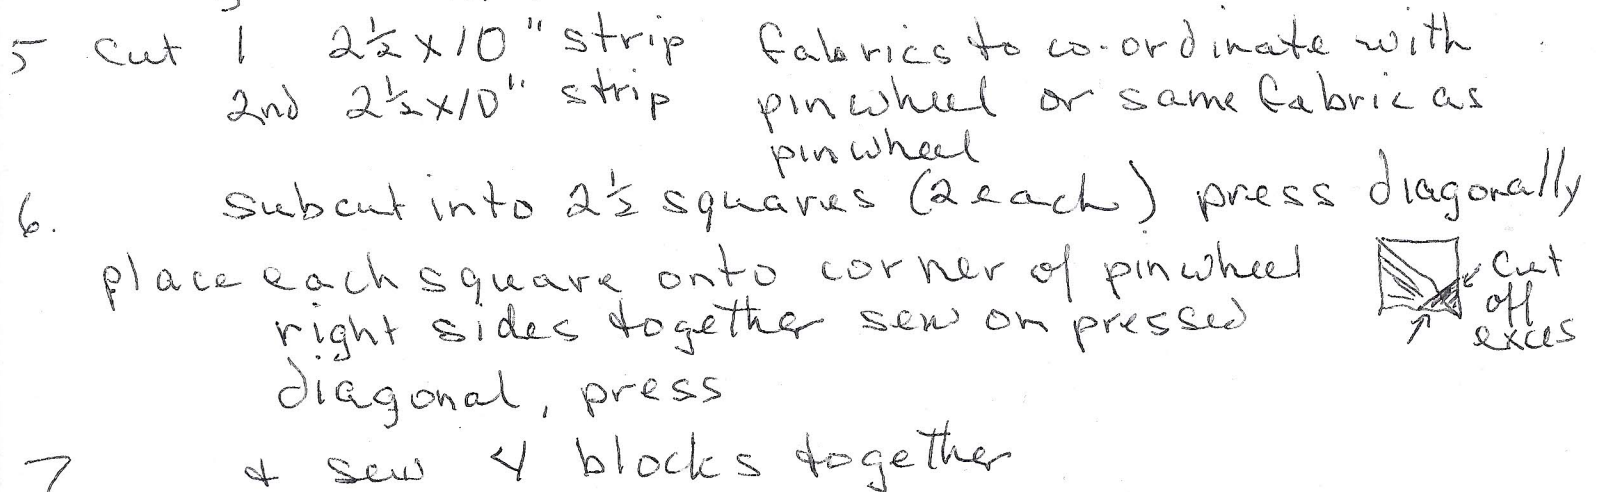 5 Cut 1 2½ x 10" strip fabrics to co-ordinate with
2nd 2½ x 10" strip pinwheel or same fabric as
pinwheel
6. subcut into 2½ squares (2 each) press diagonally
place each square onto corner of pinwheel
right sides together sew on pressed
diagonal, press
Cut
off
exces
7 + sew 4 blocks together